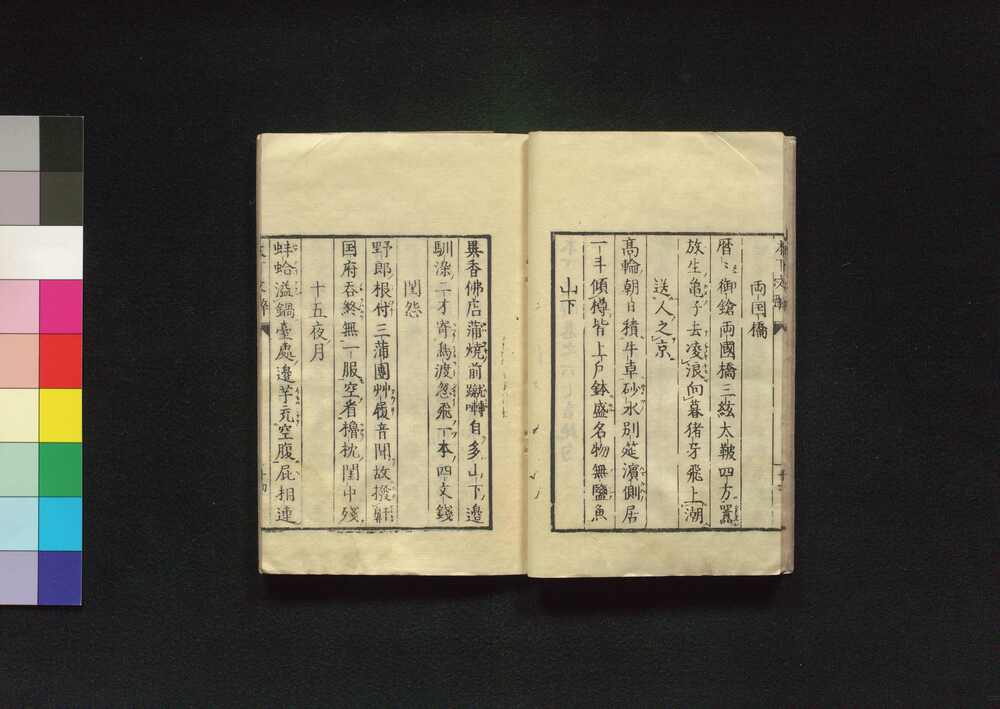 両国橋
暦〻御鎗両國橋三絃太鞁四方嚚
放生亀子去凌浪向暮猪牙飛上潮
送人之京
高輪朝日積牛車砂水別莚濱側居
一斗傾樽皆上戸鉢盛名物無鹽魚
山下
異香佛店蒲焼前蹴轉自多山下邉
馴染二才寄鳥渡忽飛一本四文錢
閨怨
野郎根付三蒲團艸履音聞故撥
国府呑終無一服空看櫓枕閨中残
十五夜月
蚌蛤溢鍋臺處邉芋充空腹屁相連